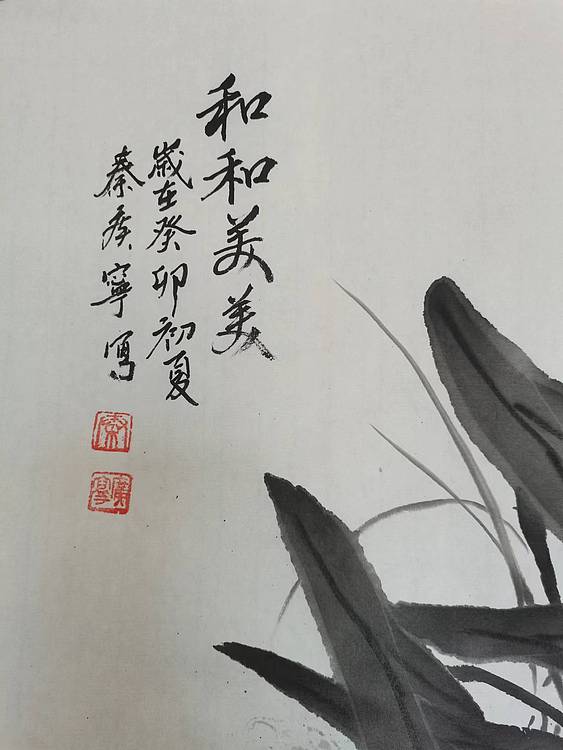 和和美美
歲在癸卯初夏
秦廣寧寫